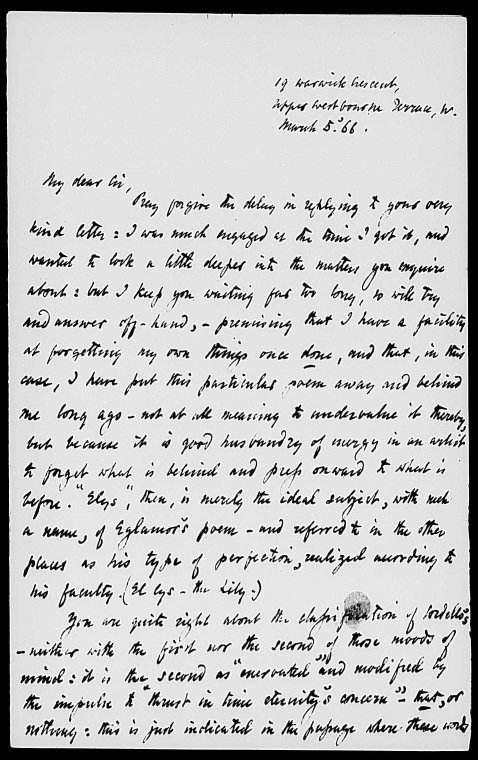 19 Warwick Crescent,
Upper Westbourne Terrace, W.
March 5. 66.
My dear Sir,
Pray forgive the delay in replying to your very
kind letter: I was much engaged at the time I got it, and
wanted to look a little deeper into the matters you enquire
about: but I keep you waiting far too long, so will try
and answer off-hand, - premising that I have a facility
at forgetting my own things once done, and that, in this
case, I have put this particular poem away and behind
me long ago - not at all meaning to undervalue it thereby,
but because it is good husbandry of energy in an artist
to forget what is behind and press onward to what is
before. "Elys", then, is merely the ideal subject, with such
a name, of Eglamor's poem - and referred to in the other
places as his type of perfection, realized according to
his faculty. (El lys - the lily.)
You are quite right about the classification of Sordello's
- neither with the first nor the second of those moods of
mind: it is the second as "enervated" and modified by
the impulse to "thrust in time eternity's concern" - that, or
nothing: this is just indicated in the passage where these words